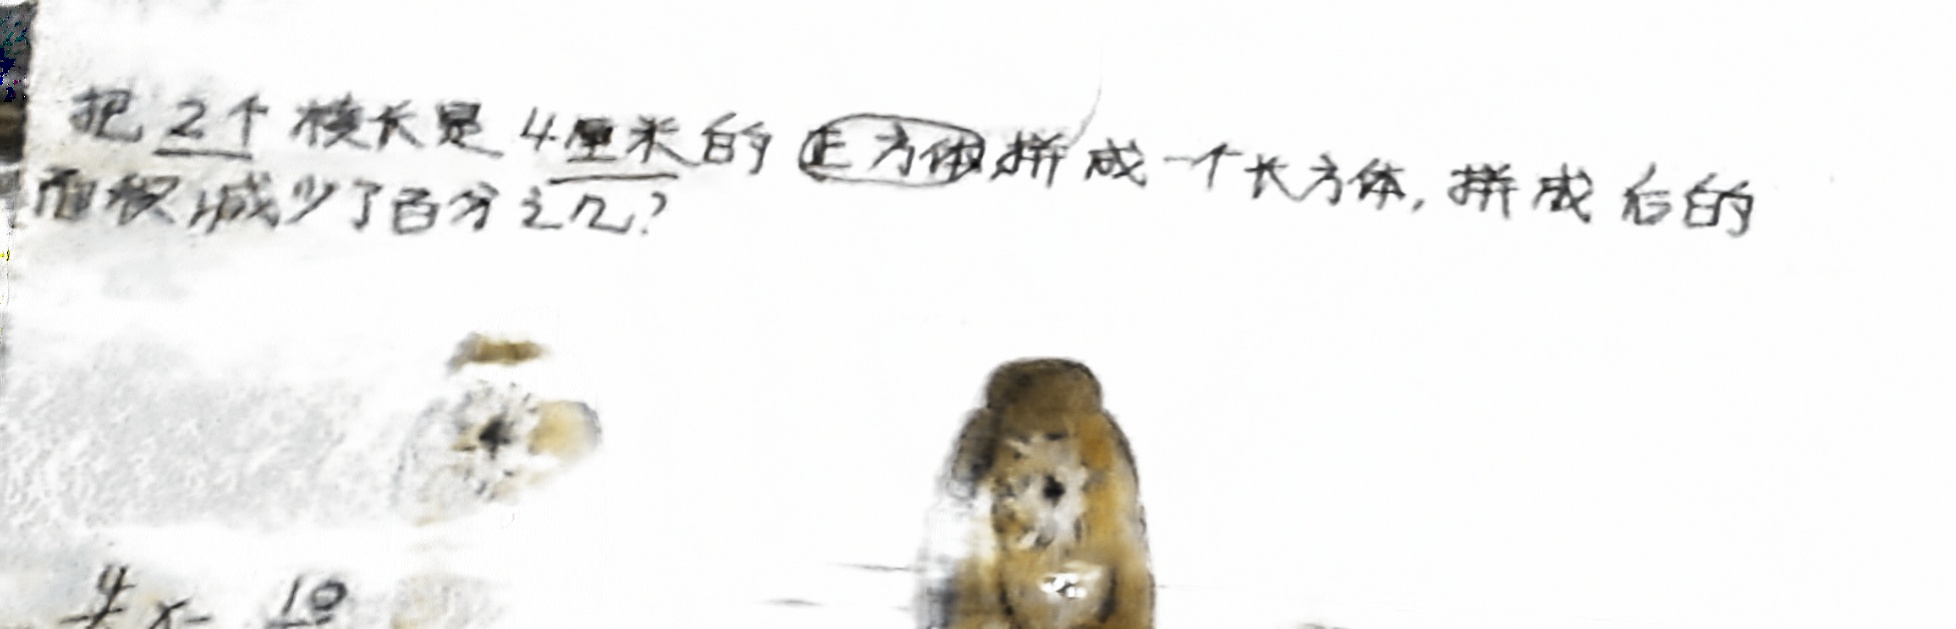 把2个棱长是4厘米的正方体拼成一个长方体,拼成后的
面积减少了百分之几?